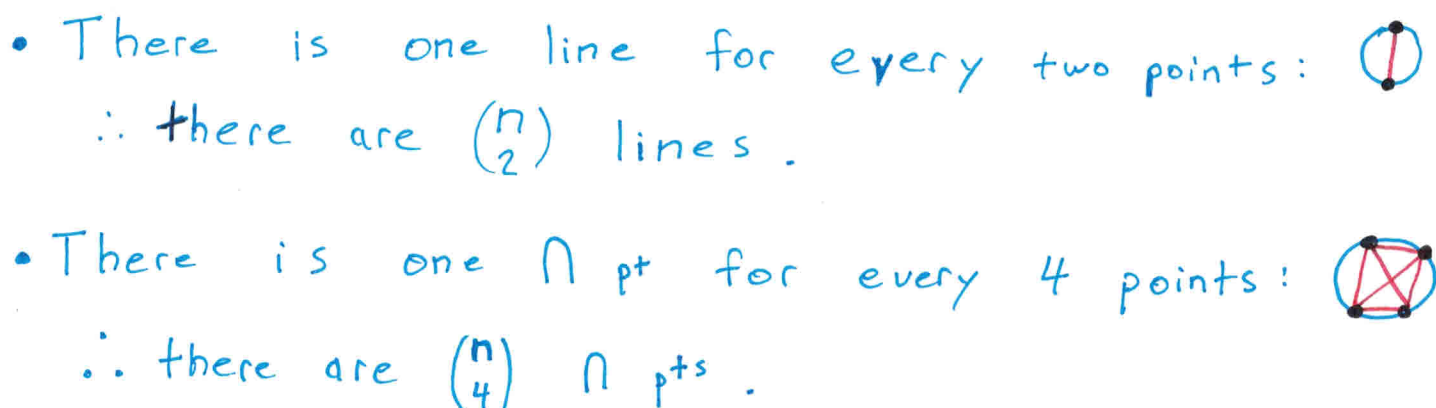 • There is one line for every two points:
∴ there are (n 2) lines.
• There is one ∩ pt for every 4 points:
∴ there are (n 4) ∩ pts.